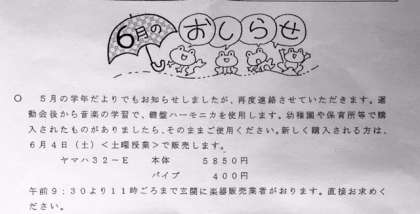 6月の おしらせ
○ 5月の学年だよりでもお知らせしましたが、再度連絡させていただきます。運
動会後から音楽の学習で、鍵盤ハーモニカを使用します。幼稚園や保育所等で購
入されたものがありましたら、そのままご使用ください。新しく購入される方は、
6月4日(土)<土曜授業>で販売します。
ヤマハ32-E 本体 5850円
パイプ 400円
午前9:30より11時ごろまで玄関に楽器販売業者がおります。直接お求めく
ださい。